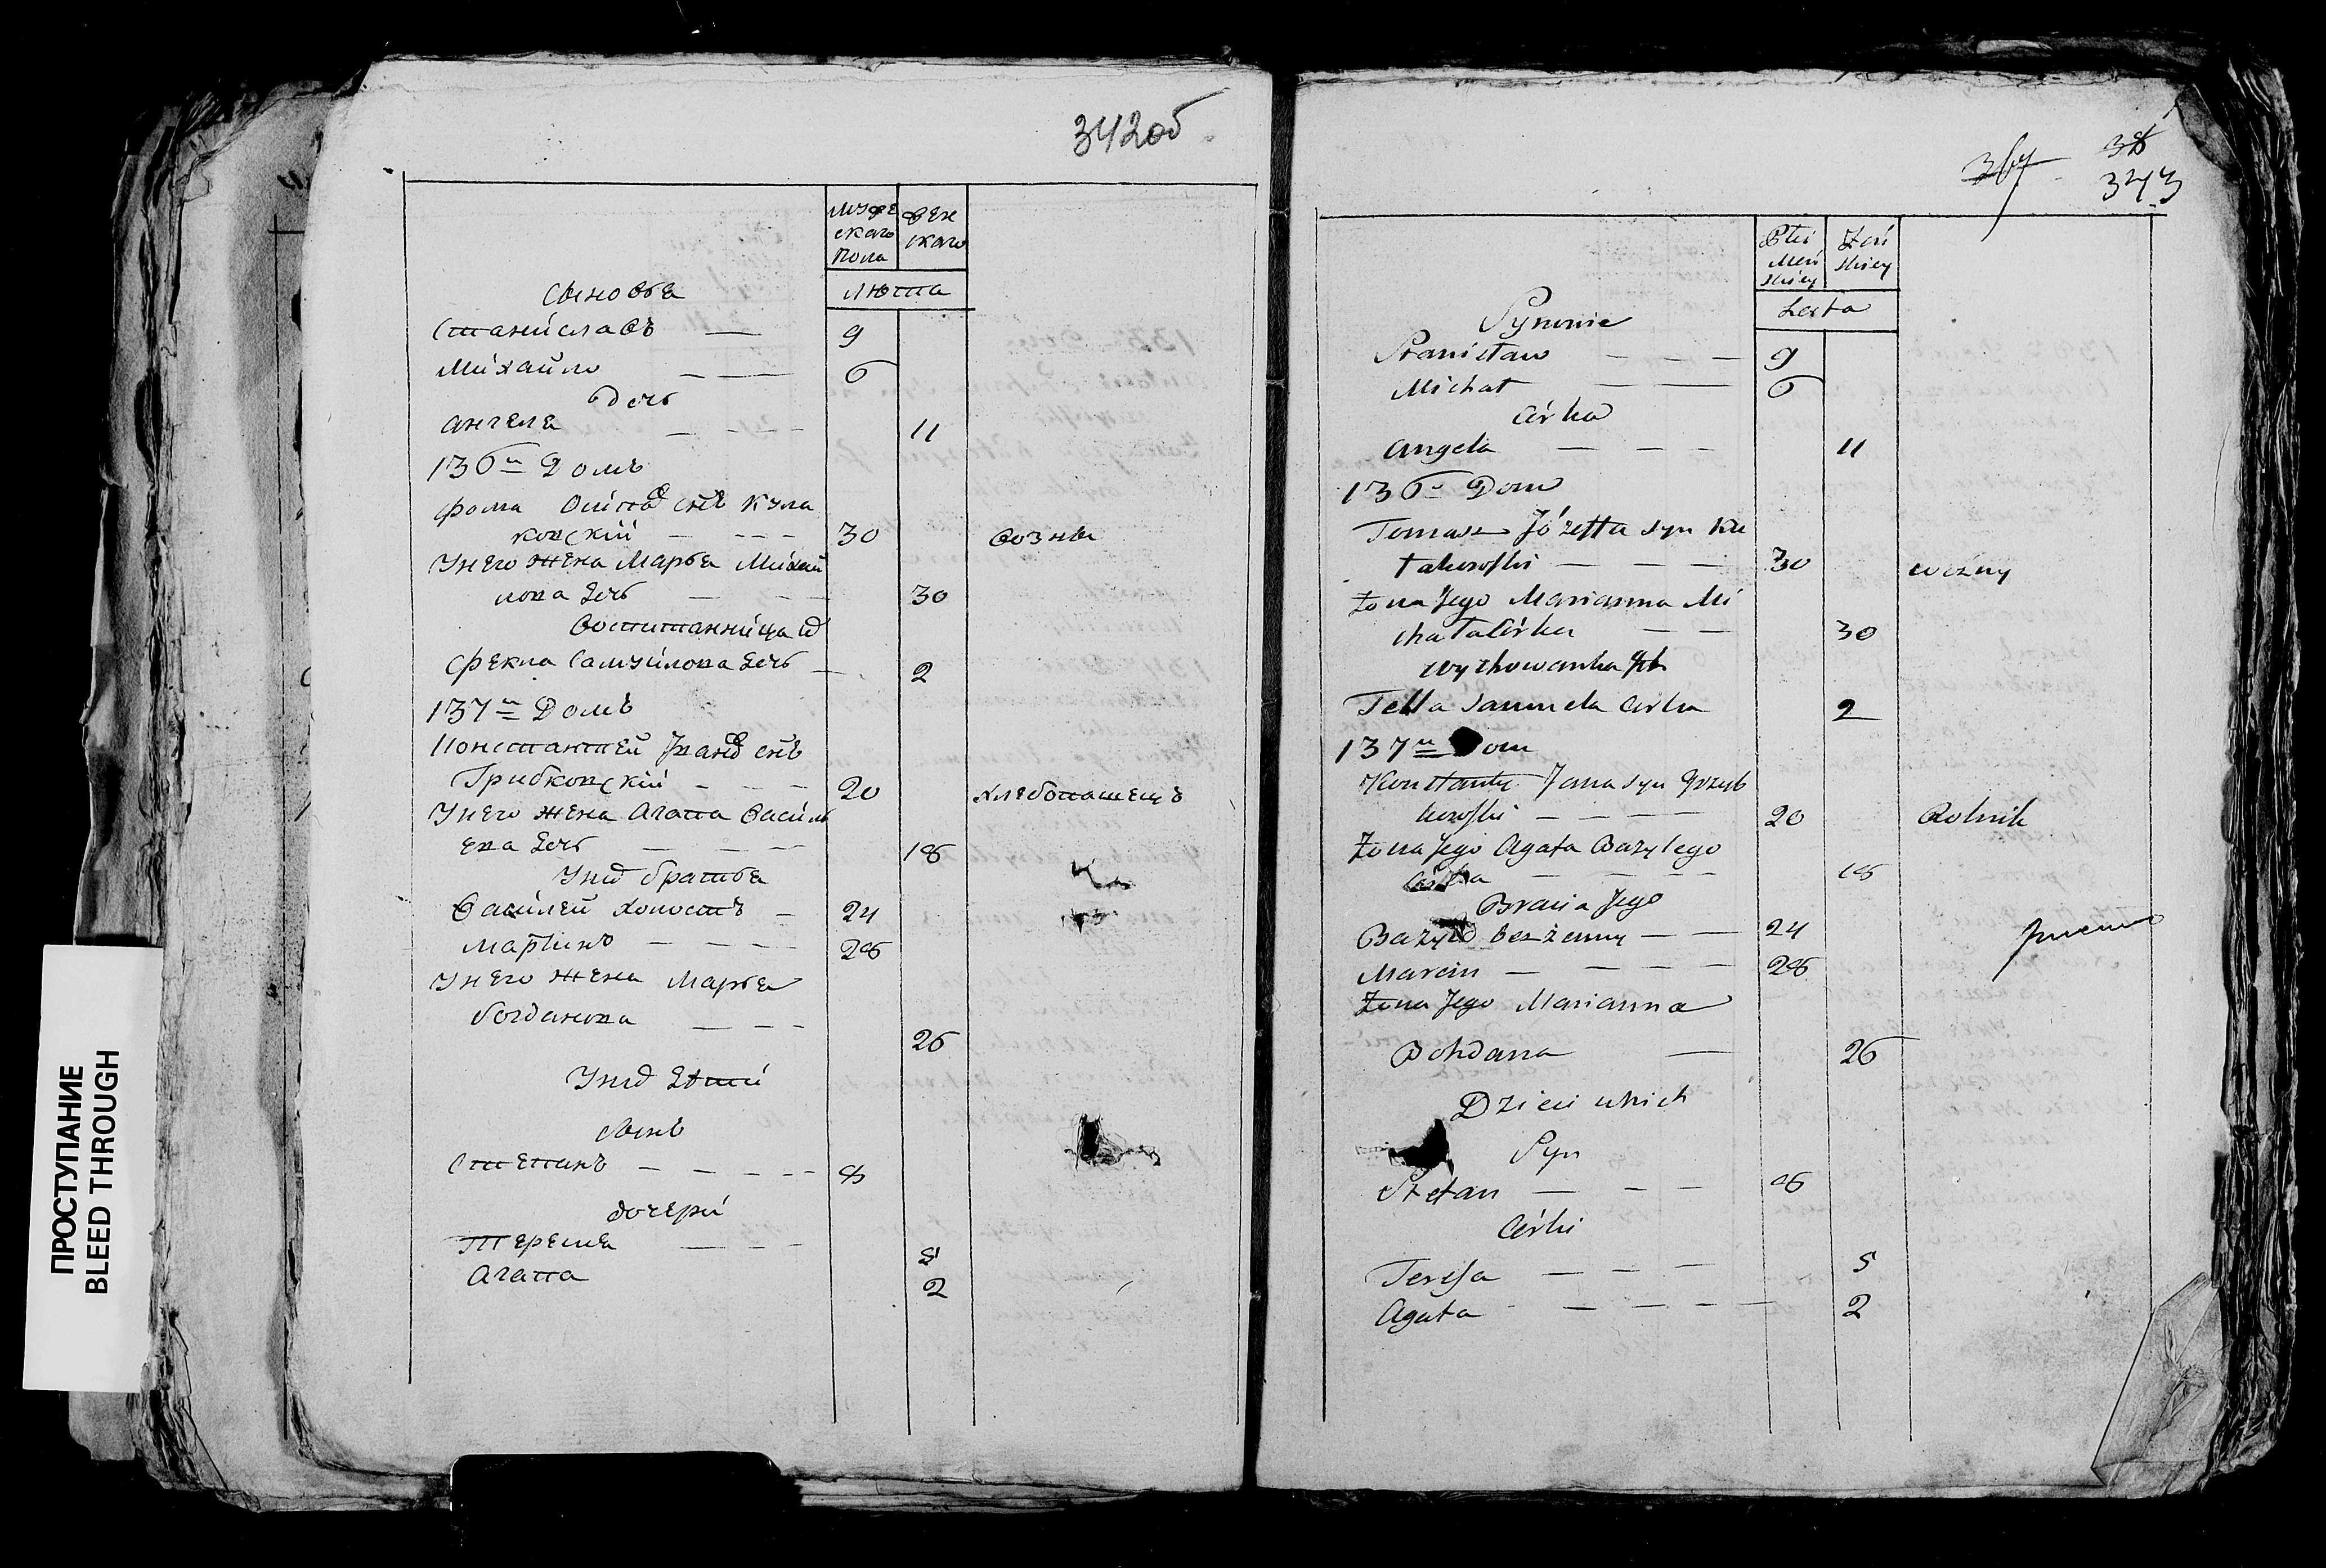 342об
Муже
скаго
пола
женскаго
лѣта
Сыновья
Станиславъ — 9
Михайло — — — 6
дочь
Ангеля — — — 11
136й Домъ
Фома Осиповъ снъ Кула
ковскій — — — — 30 возны
У него жена Марья Михай
лова дочь — — — 30
воспитанница ихъ
Фекла Самуилова дочь — 2
137й Домъ
Константей Ивановъ снъ
Грибковскій — — — 20 хлебопашецъ
У него жена Агата Василь
ева дочь — — — 18
У них братья
Василей холостъ — 24
Мартинъ — — — — 28
У него жена Марья
Богданова — — — 26
У них дѣти
сынъ
Степанъ — — — — — 8
дочери
Тереша — — — 5
Агата 2
ПРОСТУПАНИЕ
BLEED THROUGH
367
38
343
Płci
Męż
skiey
Żeń
skiey
Lata
Synowie
Stanisław — — — 9
Michał — — 6
Córka
Angela — — — 11
136y Dom
Tomasz Józeffa syn Ku
łakowski — — — 30 woźny
Żona Jego Marianna Mi
chała Córka — — 30
wychowanka Ich
Tekla Samuela Córka 2
137y Dom
Konstanty Jana syn Grzyb
kowski — — — — 20 Rolnik
Żona Jego Agata Bazylego
Córka — — — — 18
Bracia Jego
Bazyli bezżenny — — 24
Marcin — — — — 28
Żona Jego Marianna
Bohdana — 26
Dzieci u nich
Syn
Stefan — — — 8
Córki
Teressa — — — 5
Agata — — — — 2